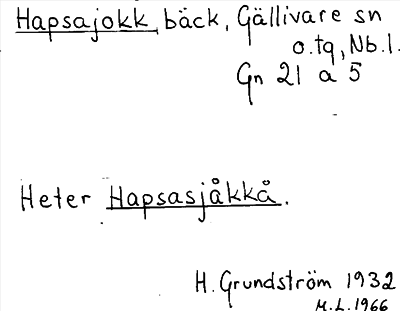 Hapsajokk, bäck, Gällivare sn
o. tg, Nb. l.
Gn 21 a 5
Heter Hapsasjåkkå.
H. Grundström 1932
M.L. 1966